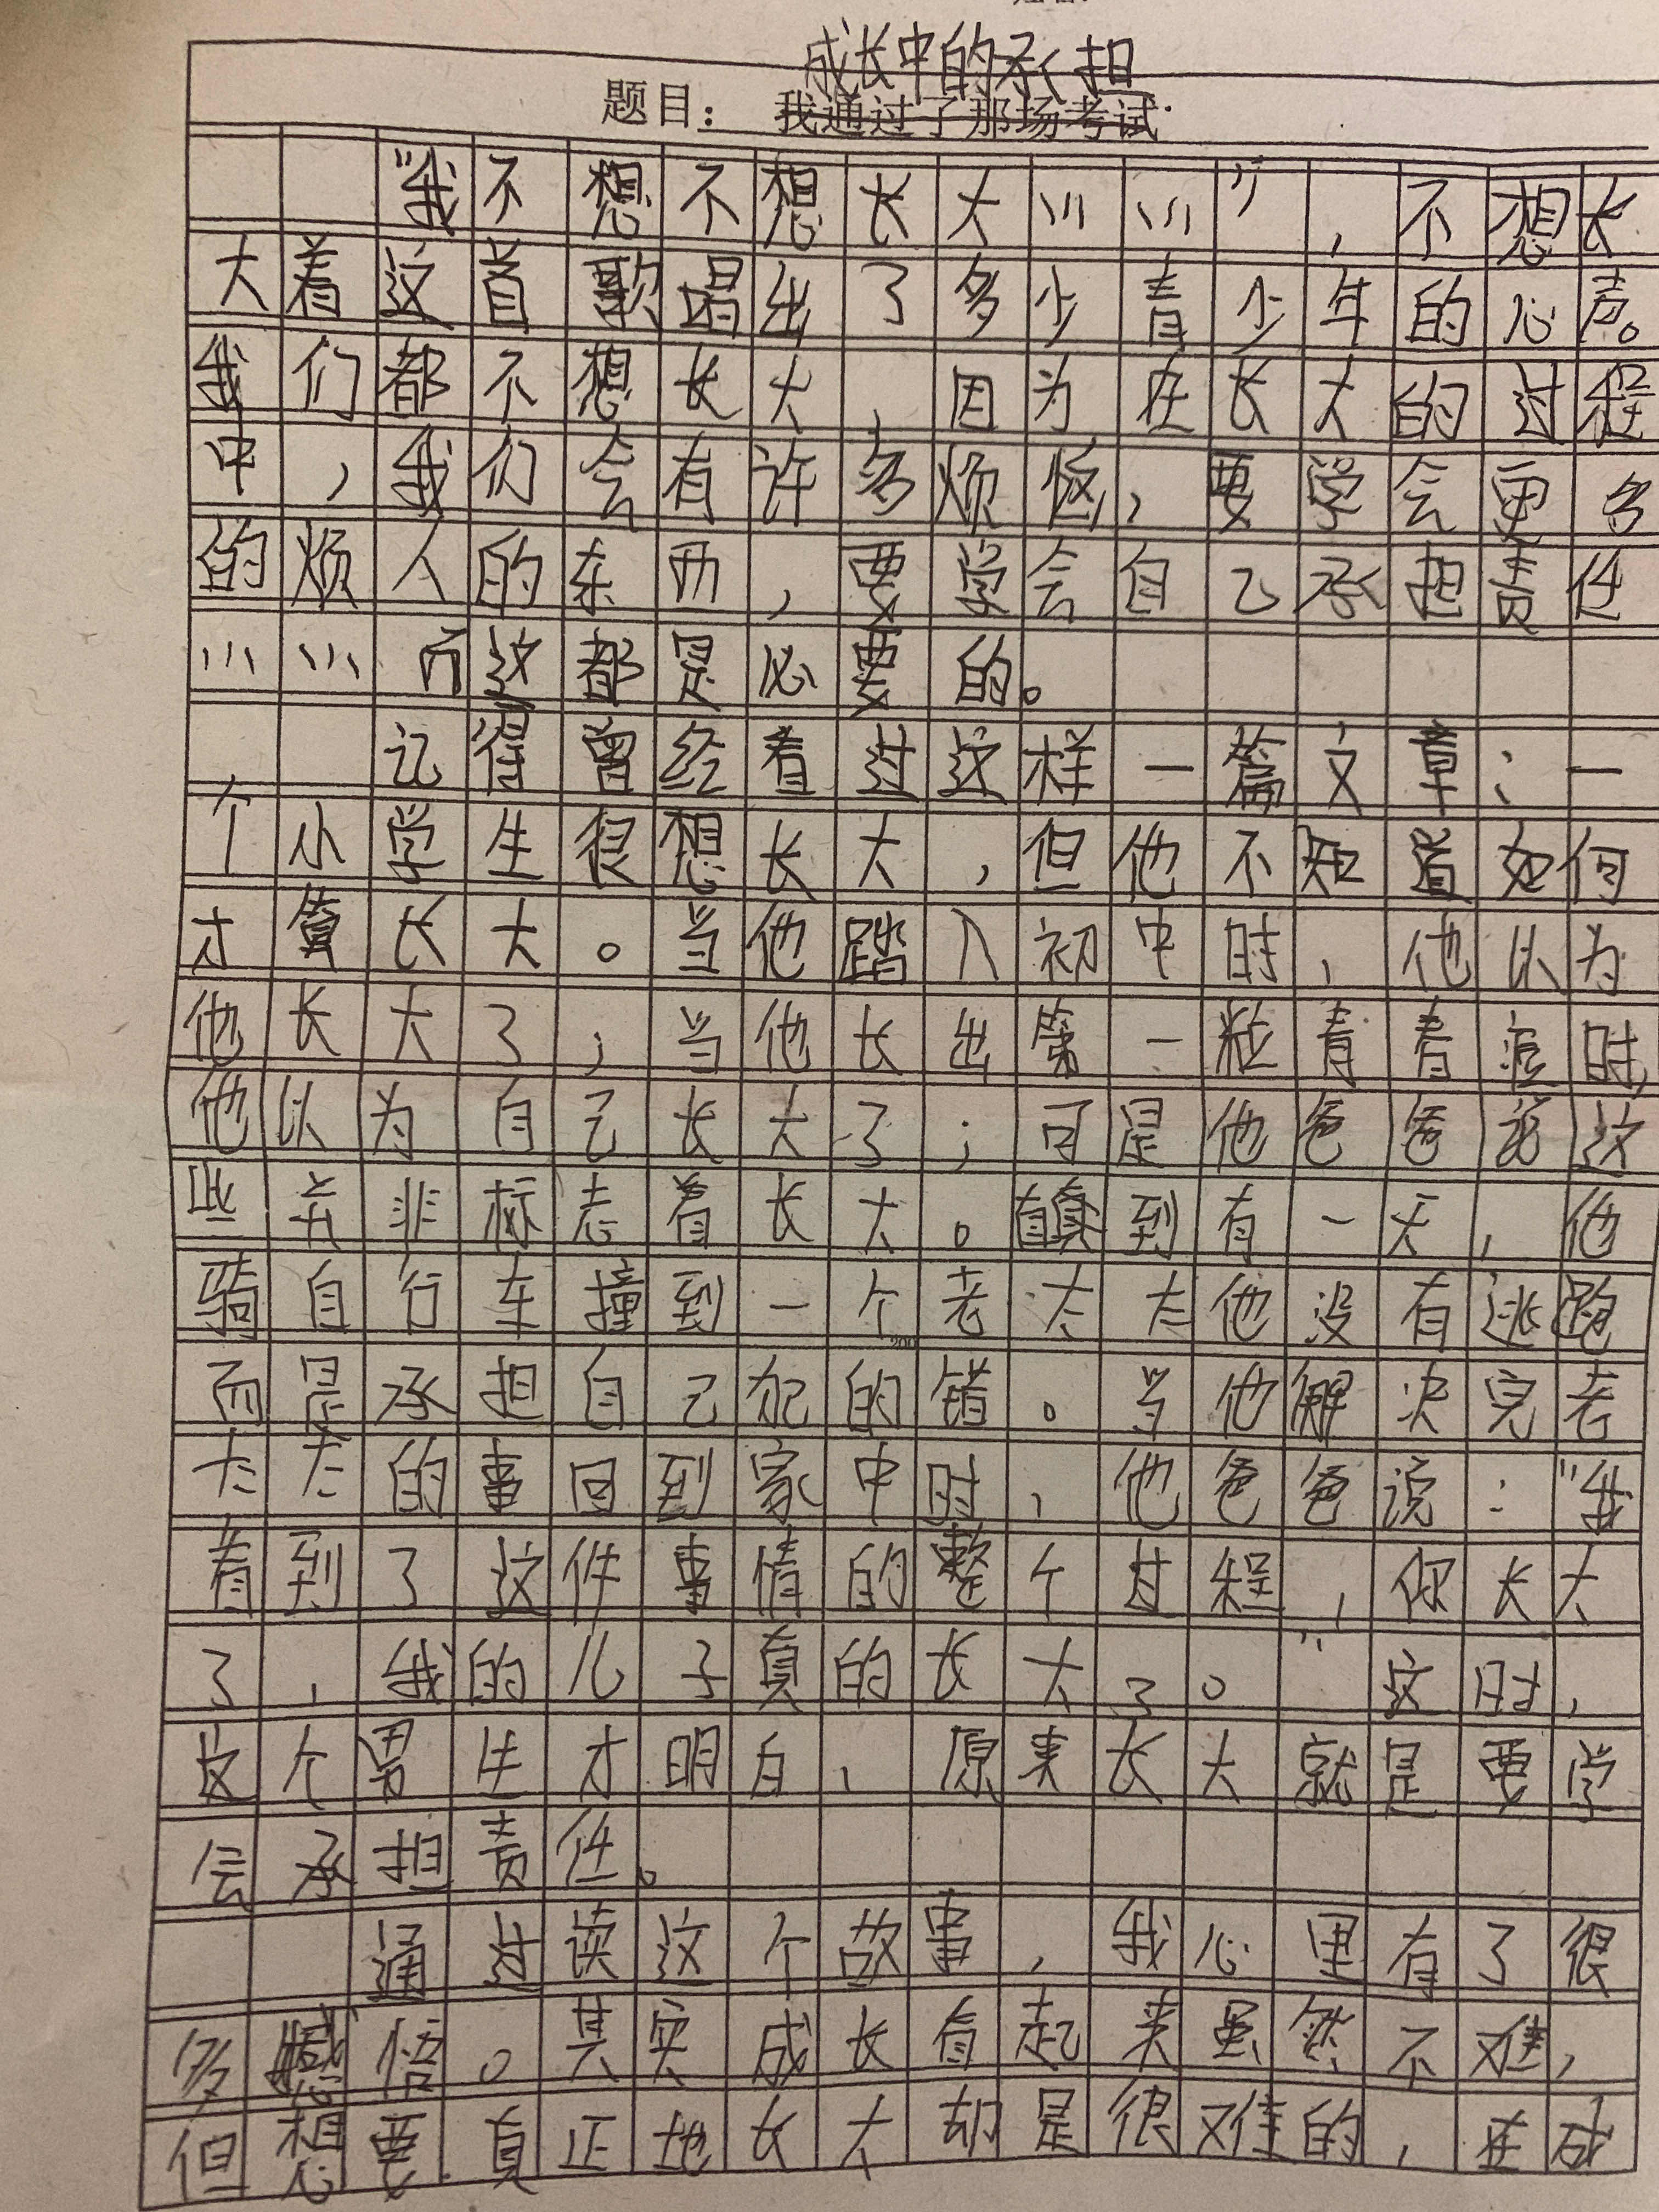 成长中的承担
题目：我通过了那场考试
"我不想不想长大……"，不想长
大着这首歌唱出了多少青少年的心声。
我们都不想长大，因为在长大的过程
中，我们会有许多烦恼，要学会更多
的烦人的东西，要学会自己承担责任
……而这都是必要的。
记得曾经看过这样一篇文章：一
个小学生很想长大，但他不知道如何
才算长大。当他踏入初中时，他以为
他长大了；当他长出第一粒青春痘时，
他以为自己长大了；可是他爸爸说这
些并非标志着长大。直到有一天，他
骑自行车撞到一个老太太他没有逃跑
200
而是承担自己犯的错。当他解决完老
太太的事回到家中时，他爸爸说："我
看到了这件事情的整个过程，你长大
了，我的儿子真的长大了。"这时，
这个男生才明白，原来长大就是要学
会承担责任。
通过读这个故事，我心里有了很
多感悟。其实成长看起来虽然不难，
但想要真正地长大却是很难的，在成